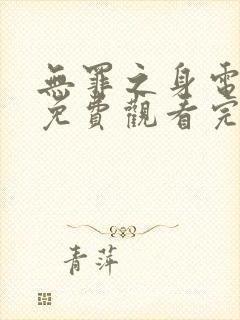 無罪之身電
免費觀看完
青萍